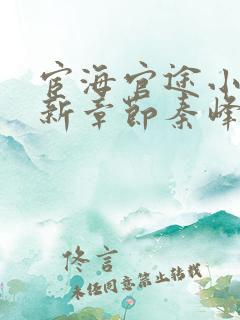 宦海官途小
新章节秦峰
佟言
未经同意禁止转载